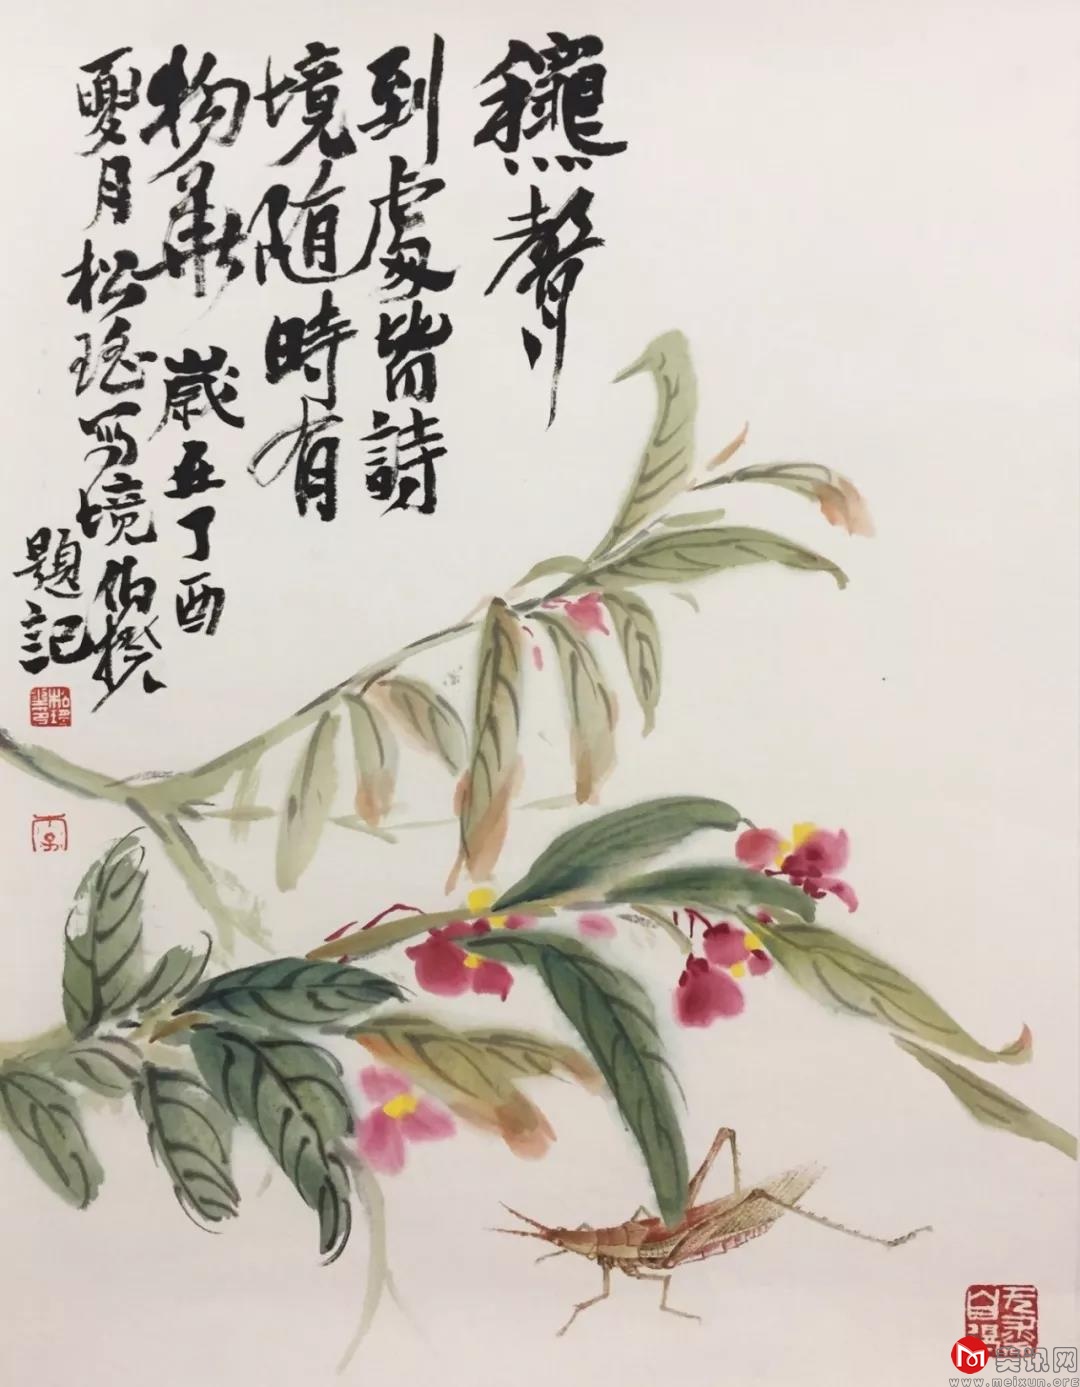 龝聲
到處皆詩
境随時有
物華 歲在丁酉
夏月松瑤写境伯揆
題記
美讯网
www.meixun.org